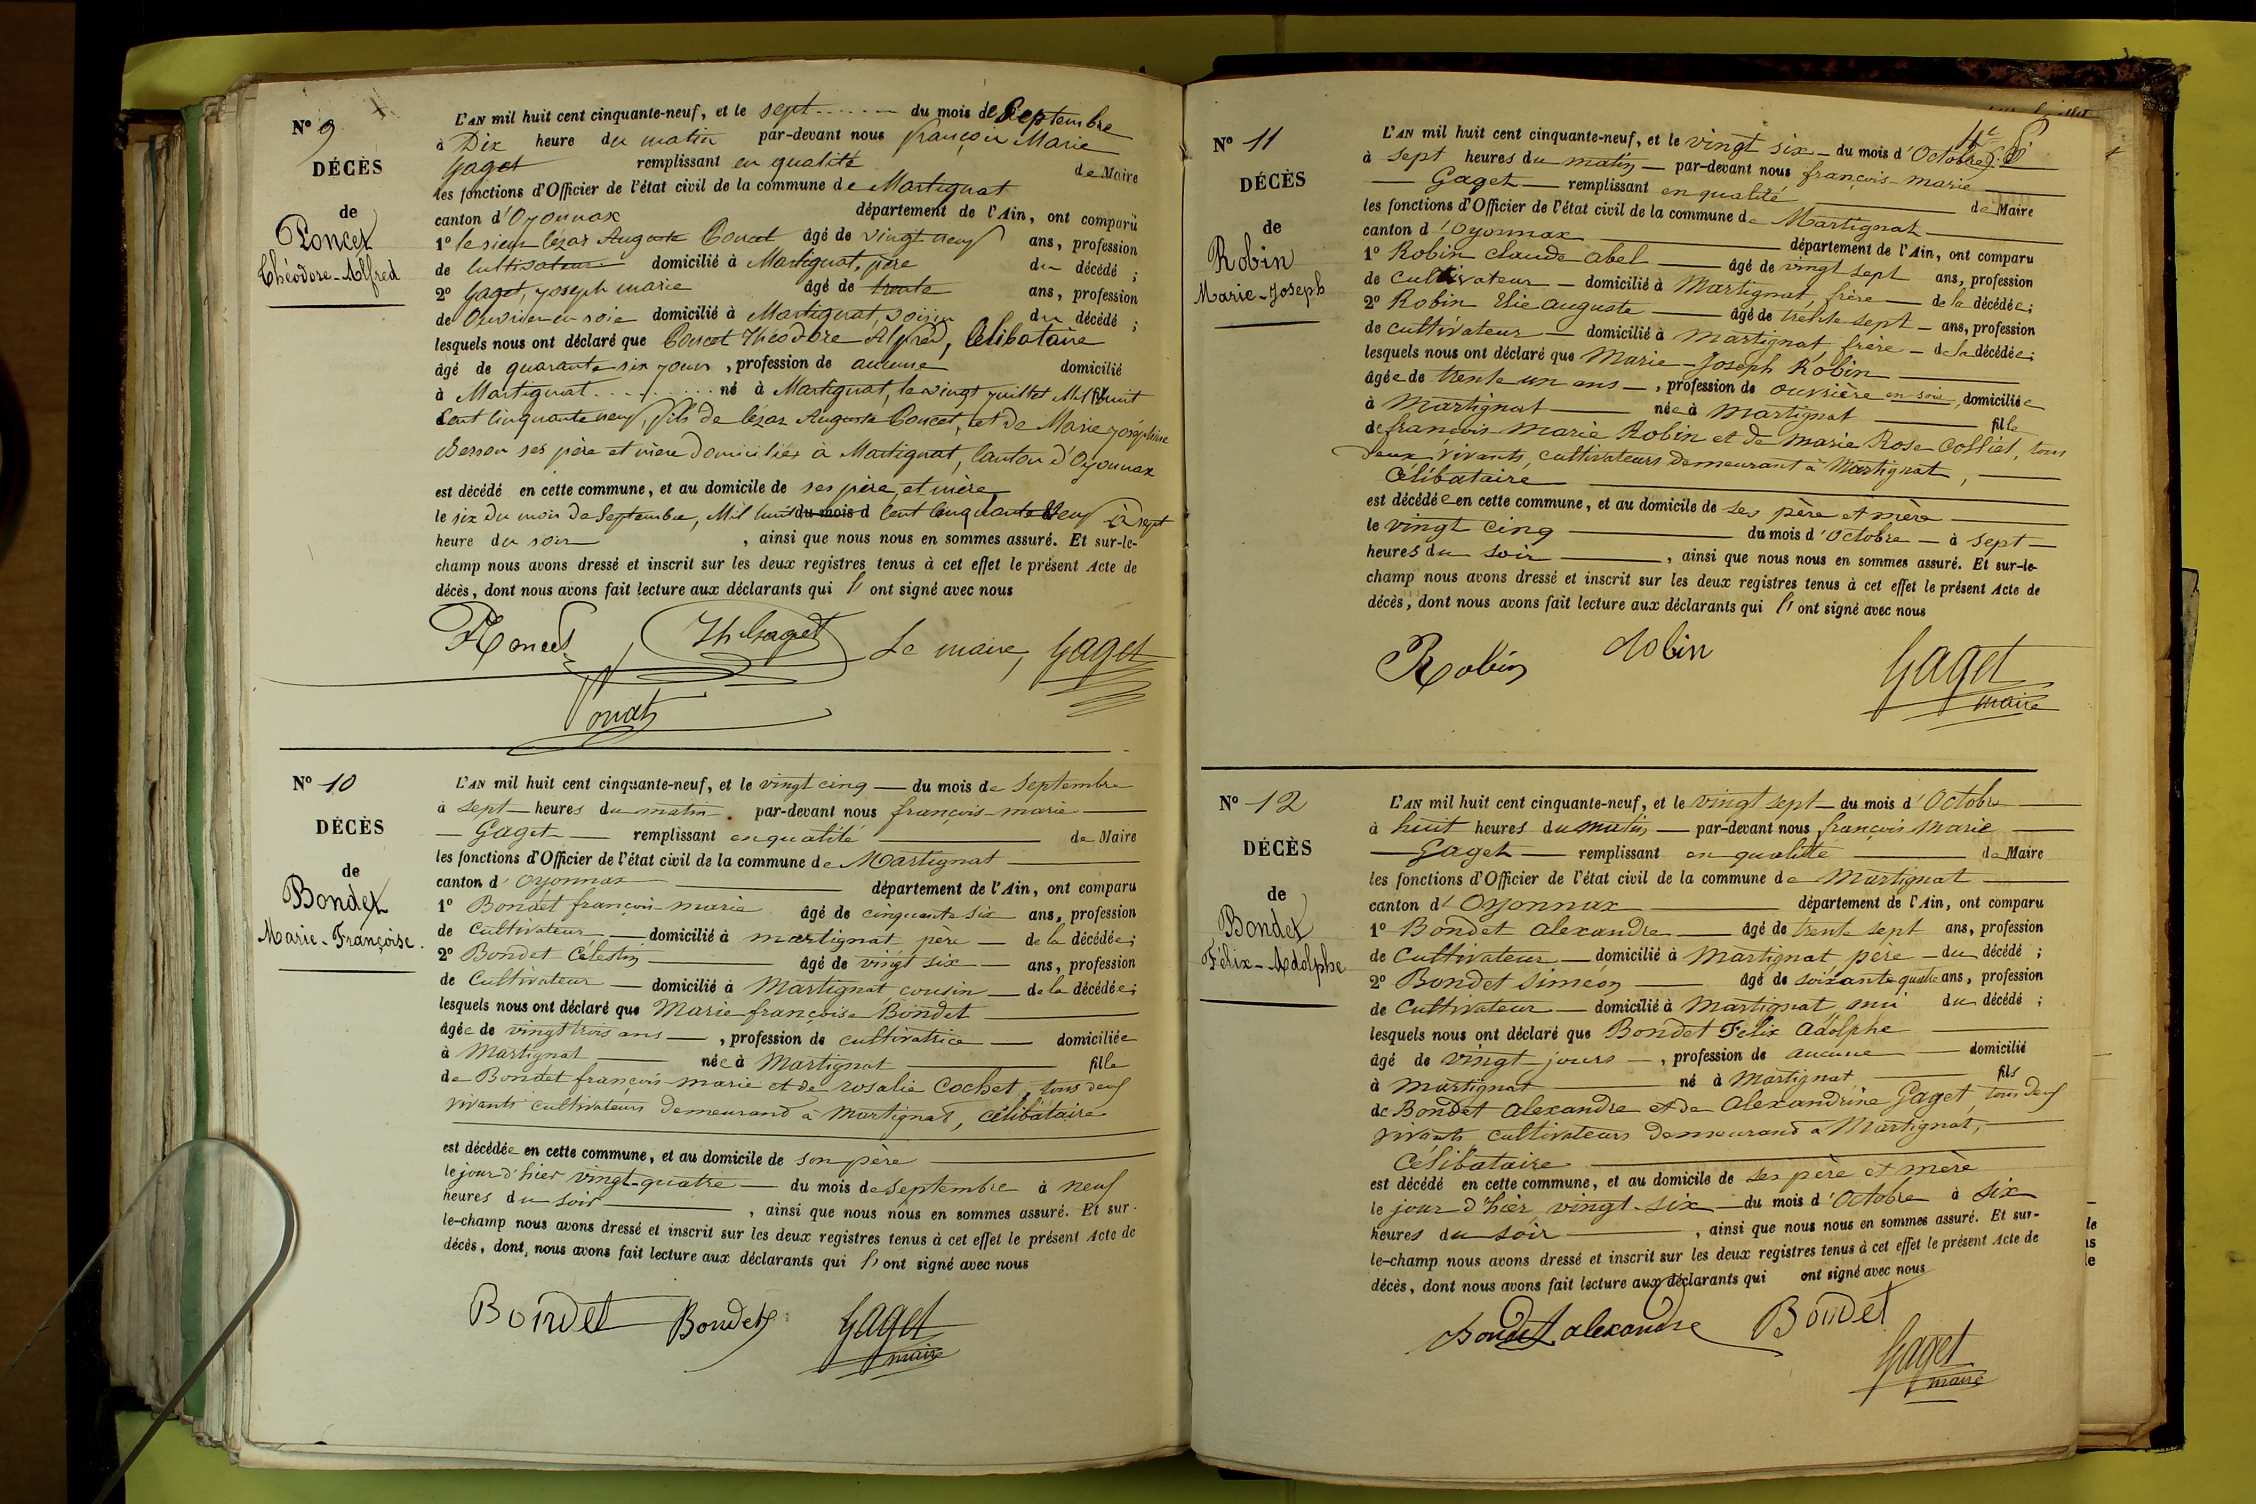 N° 9
DÉCÈS
de
Poncet
Théodore-Alfred
L'AN mil huit cent cinquante-neuf, et le sept du mois de Septembre
à Dix heure du matin par-devant nous françois Marie
Gaget remplissant en qualité de Maire
les fonctions d'Officier de l'état civil de la commune de Martignat
canton d'Oyonnax département de l'Ain, ont comparu
1° le sieur César Auguste Poncet âgé de vingt neuf ans, profession
de Cultivateur domicilié à Martignat, père du décédé ;
2° Gaget, Joseph marie âgé de trente ans, profession
de Ouvrier en soie domicilié à Martignat, voisin du décédé ;
lesquels nous ont déclaré que Poncet Théodore Alfred, Célibataire
âgé de quarante six jours, profession de aucune domicilié
à Martignat né à Martignat, le vingt juillet Mil huit
Cent Cinquante neuf, fils de César Auguste Poncet, et de Marie Joséphine
Besson ses père et mère domiciliés à Martignat, Canton d'Oyonnax
est décédé en cette commune, et au domicile de ses père et mère
le six du mois de Septembre, Mil huit du mois d Cent Cinquante Neuf à sept
heure du soir, ainsi que nous nous en sommes assuré. Et sur-le-
champ nous avons dressé et inscrit sur les deux registres tenus à cet effet le présent Acte de
décès, dont nous avons fait lecture aux déclarants qui ont signé avec nous
Poncet Gaget Le maire, Gaget
N° 10
DÉCÈS
de
Bondet
Marie-Françoise.
L'AN mil huit cent cinquante-neuf, et le vingt cinq du mois de Septembre
à sept heures du matin. par-devant nous françois-marie
Gaget remplissant en qualité de Maire
les fonctions d'Officier de l'état civil de la commune de Martignat
canton d'Oyonnax département de l'Ain, ont comparu
1° Bondet françois-marie âgé de cinquante six ans, profession
de Cultivateur domicilié à martignat père de la décédée ;
2° Bondet Célestin âgé de vingt six ans, profession
de Cultivateur domicilié à Martignat cousin de la décédée ;
lesquels nous ont déclaré que Marie françoise Bondet
âgée de vingt trois ans, profession de cultivatrice domiciliée
à Martignat née à Martignat fille
de Bondet françois marie et de rosalie Cochet, tous deux
vivants cultivateurs demeurand à Martignat, célibataire
est décédée en cette commune, et au domicile de son père
le jour d'hier vingt-quatre du mois de Septembre à neuf
heures du soir, ainsi que nous nous en sommes assuré. Et sur-
le-champ nous avons dressé et inscrit sur les deux registres tenus à cet effet le présent Acte de
décès, dont nous avons fait lecture aux déclarants qui ont signé avec nous
Bondet Bondet Gaget
maire
N° 11
DÉCÈS
de
Robin
Marie-Joseph
L'AN mil huit cent cinquante-neuf, et le vingt six du mois d'Octobre
à sept heures du matin par-devant nous françois-marie
Gaget remplissant en qualité de Maire
les fonctions d'Officier de l'état civil de la commune de Martignat
canton d'Oyonnax département de l'Ain, ont comparu
1° Robin claude abel âgé de vingt sept ans, profession
de Cultivateur domicilié à Martignat, frère de la décédée ;
2° Robin Elie auguste âgé de trente sept ans, profession
de cultivateur domicilié à Martignat frère de la décédée ;
lesquels nous ont déclaré que Marie-Joseph Robin
âgée de trente un ans, profession de ouvrière en soie, domiciliée
à Martignat née à Martignat fille
de françois-Marie Robin et de marie Rose Collet, tous
deux vivants, cultivateurs demeurant à Martignat,
Célibataire
est décédée en cette commune, et au domicile de ses père et mère
le vingt cinq du mois d'Octobre à sept
heures du soir, ainsi que nous nous en sommes assuré. Et sur-le-
champ nous avons dressé et inscrit sur les deux registres tenus à cet effet le présent Acte de
décès, dont nous avons fait lecture aux déclarants qui ont signé avec nous
Robin Robin Gaget
maire
N° 12
DÉCÈS
de
Bondet
Félix-Adolphe
L'AN mil huit cent cinquante-neuf, et le vingt sept du mois d'Octobre
à huit heures du matin par-devant nous françois marie
Gaget remplissant en qualité de Maire
les fonctions d'Officier de l'état civil de la commune de Martignat
canton d'Oyonnax département de l'Ain, ont comparu
1° Bondet alexandre âgé de trente sept ans, profession
de Cultivateur domicilié à Martignat père du décédé ;
2° Bondet Siméon âgé de soixante quatre ans, profession
de Cultivateur domicilié à Martignat ami du décédé ;
lesquels nous ont déclaré que Bondet Félix adolphe
âgé de vingt jours, profession de aucune domicilié
à Martignat né à Martignat fils
de Bondet alexandre et de alexandrine Gaget, tous deux
vivants cultivateurs demeurand à Martignat,
Célibataire
est décédé en cette commune, et au domicile de ses père et mère
le jour d'hier vingt-six du mois d'Octobre à six
heures du soir, ainsi que nous nous en sommes assuré. Et sur-
le-champ nous avons dressé et inscrit sur les deux registres tenus à cet effet le présent Acte de
décès, dont nous avons fait lecture aux déclarants qui ont signé avec nous
Bondet alexandre Bondet
Gaget
maire